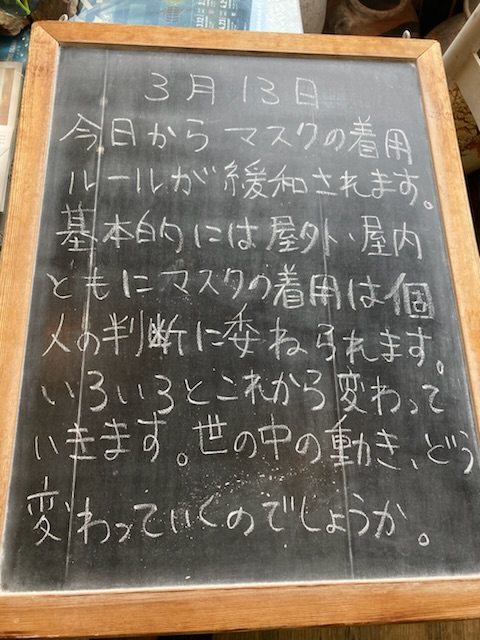 3月13日
今日からマスクの着用
ルールが緩和されます。
基本的には屋外、屋内
ともにマスクの着用は個
人の判断に委ねられます。
いろいろとこれから変わって
いきます。世の中の動き、どう
変わっていくのでしょうか。